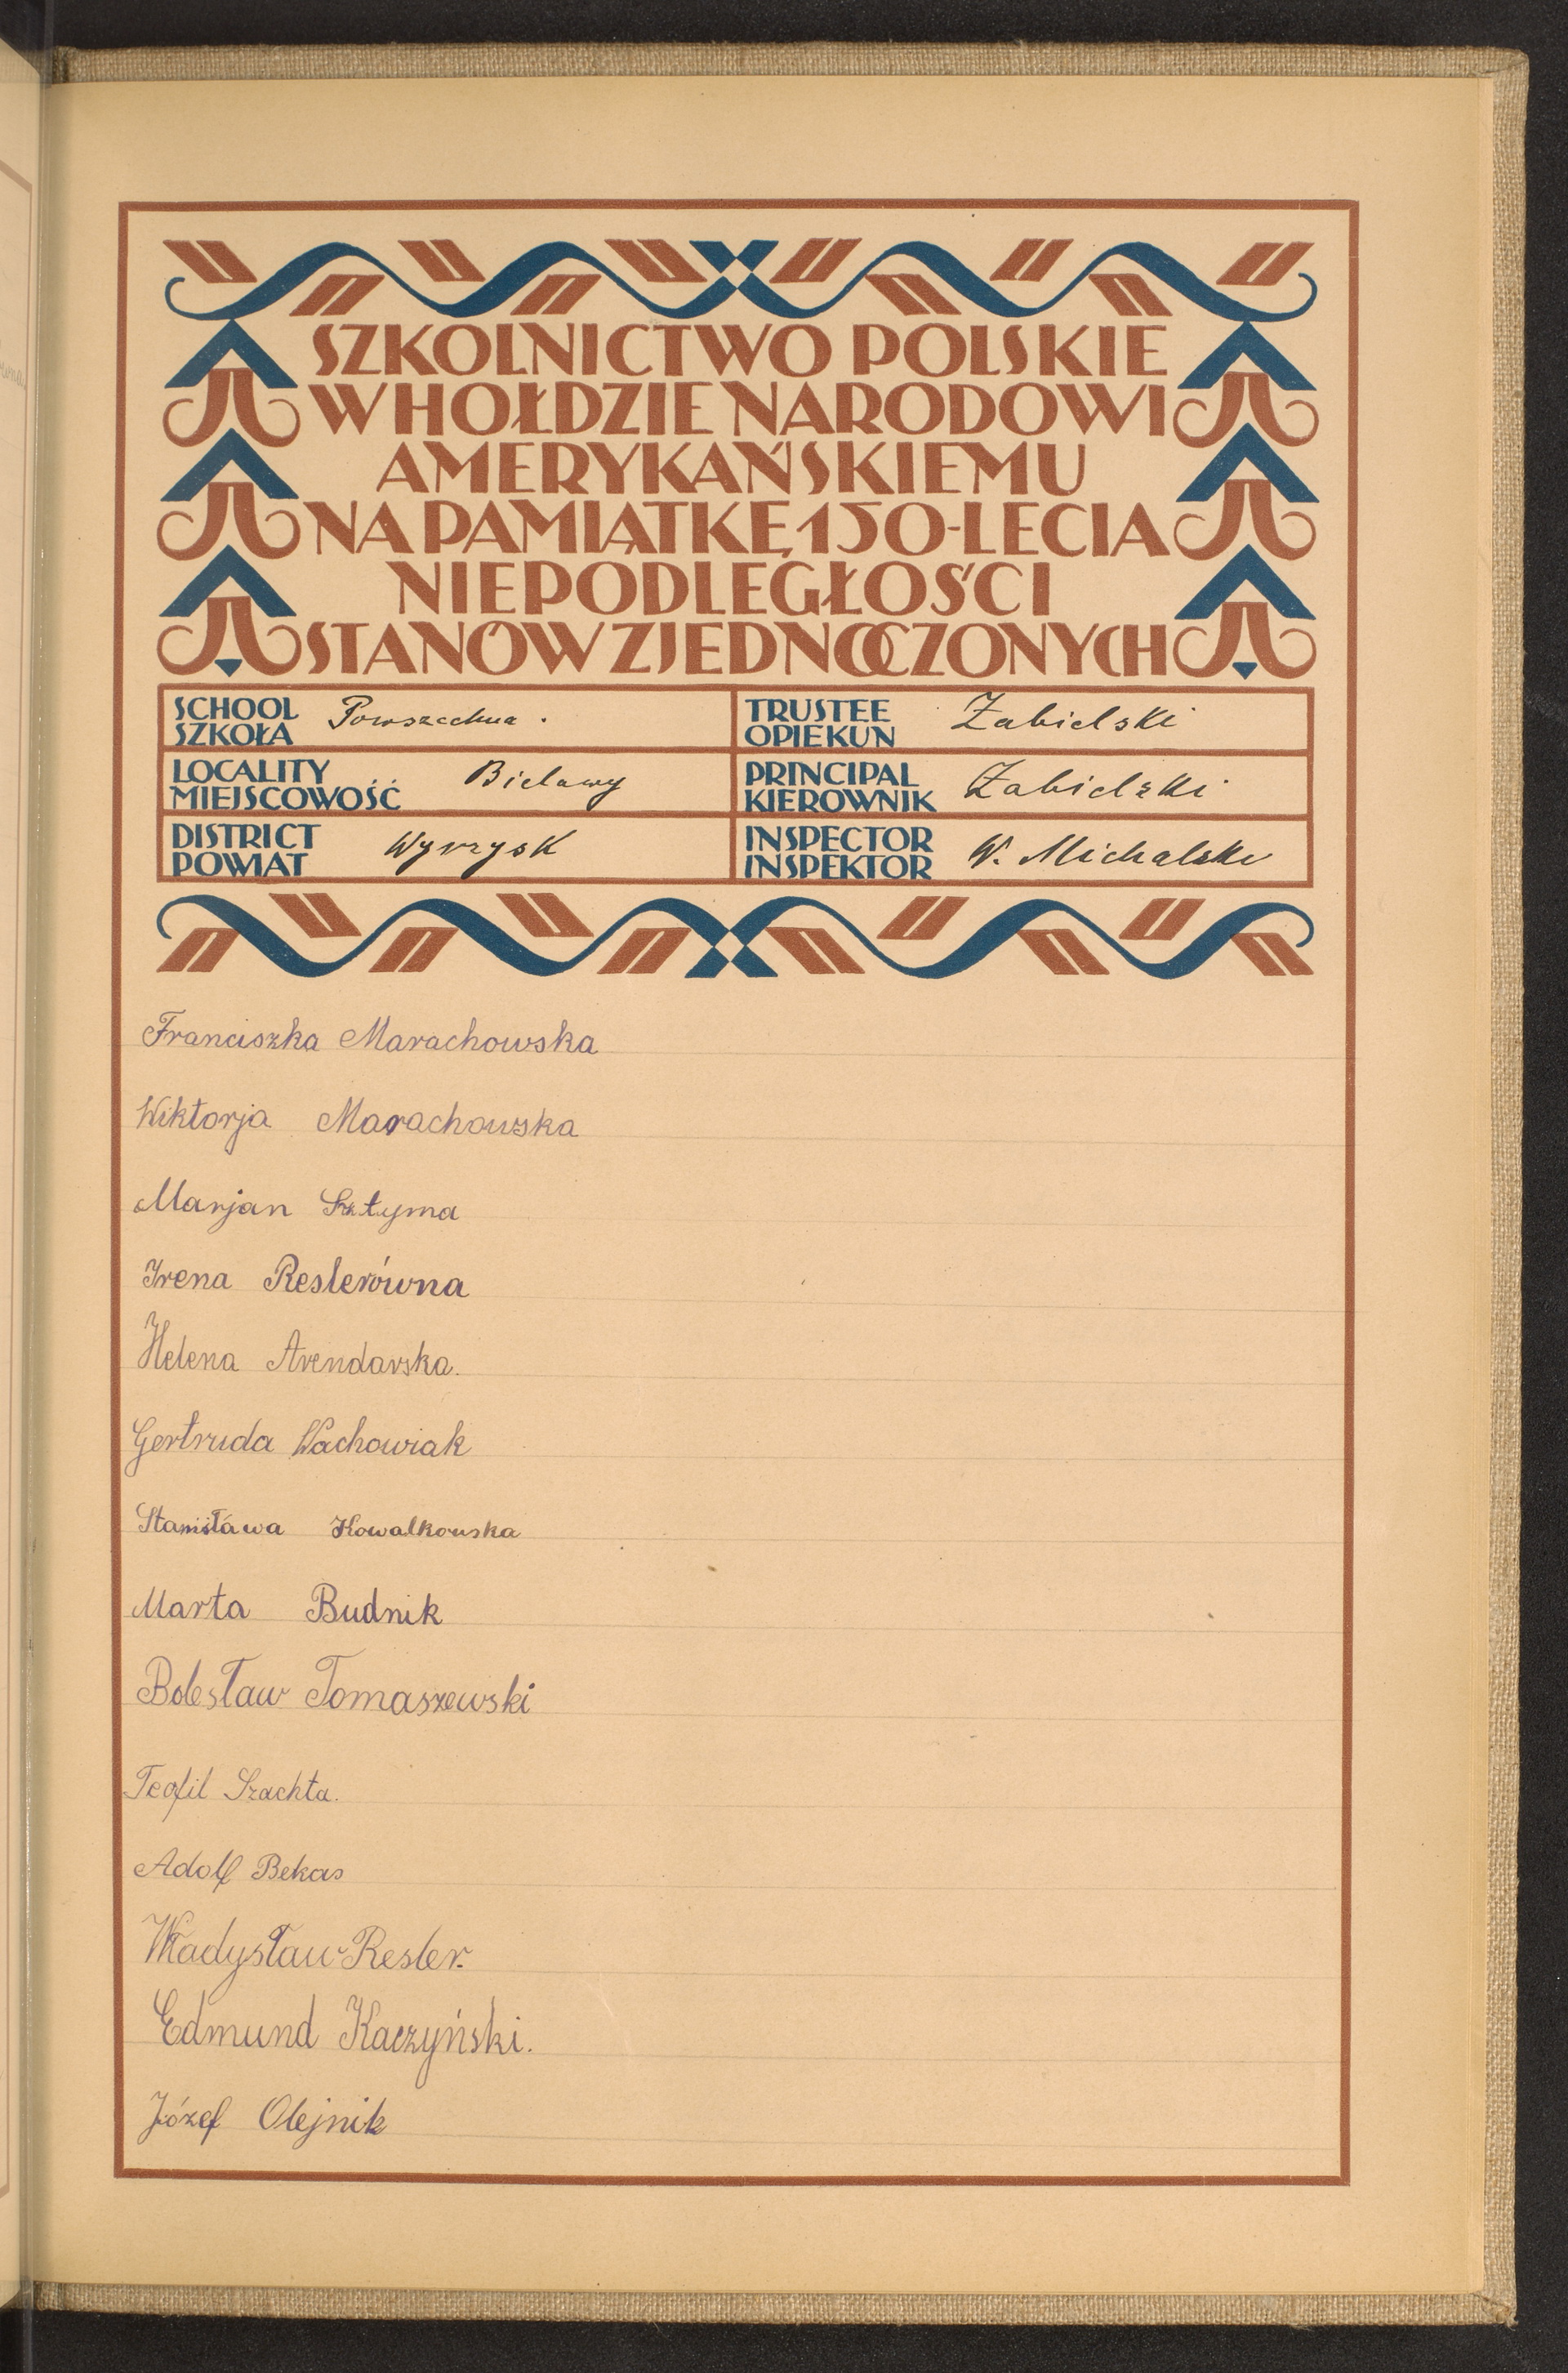 SZKOLNICTWO POLSKIE
W HOŁDZIE NARODOWI
AMERYKAŃSKIEMU
NA PAMIĄTKĘ 150-LECIA
NIEPODLEGŁOŚCI
STANÓW ZJEDNOCZONYCH
SCHOOL SZKOŁA Powszechna.
TRUSTEE OPIEKUN Zabielski
LOCALITY MIEJSCOWOŚĆ Bielawy
PRINCIPAL KIEROWNIK Zabielski
DISTRICT POWIAT Wyrzysk
INSPECTOR INSPEKTOR W. Michalski
Franciszka Marachowska
Wiktorja Marachowska
Marjan Sztyma
Irena Reslerówna
Helena Arendarska.
Gertruda Wachowiak
Stanisława Kowalkowska
Marta Budnik
Bolesław Tomaszewski
Teofil Szachta.
Adolf Bekas
Władysław Resler.
Edmund Kaczyński.
Józef Olejnik